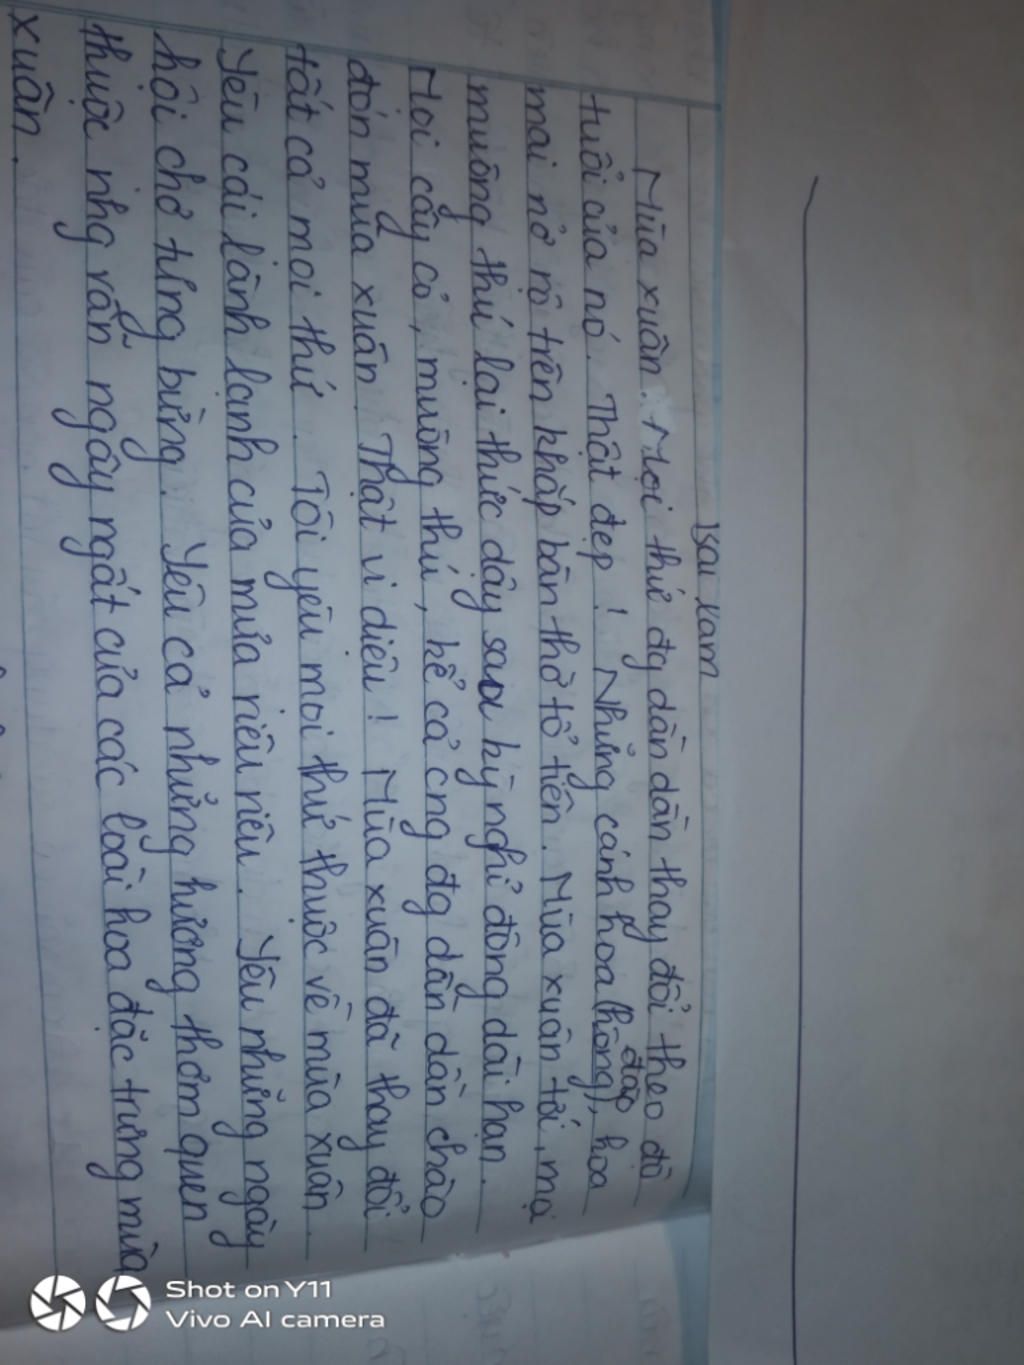 Bài làm
Mùa xuân. Mọi thứ đg dần dần thay đổi theo độ
tuổi của nó. Thật đẹp! Những cánh hoa (hồng) đào, hoa
mai nở rộ trên khắp bàn thờ tổ tiên. Mùa xuân tới, mọi
muông thú lại thức dậy sau kỳ nghỉ đông dài hạn.
Mọi cây cỏ, muông thú, kể cả cng đg dần dần chào
đón mùa xuân. Thật vi diệu! Mùa xuân đã thay đổi
tất cả mọi thứ. Tôi yêu mọi thứ thuộc về mùa xuân.
Yêu cái lành lạnh của mưa riêu riêu. Yêu những ngày
hội chợ tưng bừng. Yêu cả những hương thơm quen
thuộc nhg vẫn ngây ngất của các loài hoa đặc trưng mùa
xuân.
Shot on Y11
Vivo AI camera